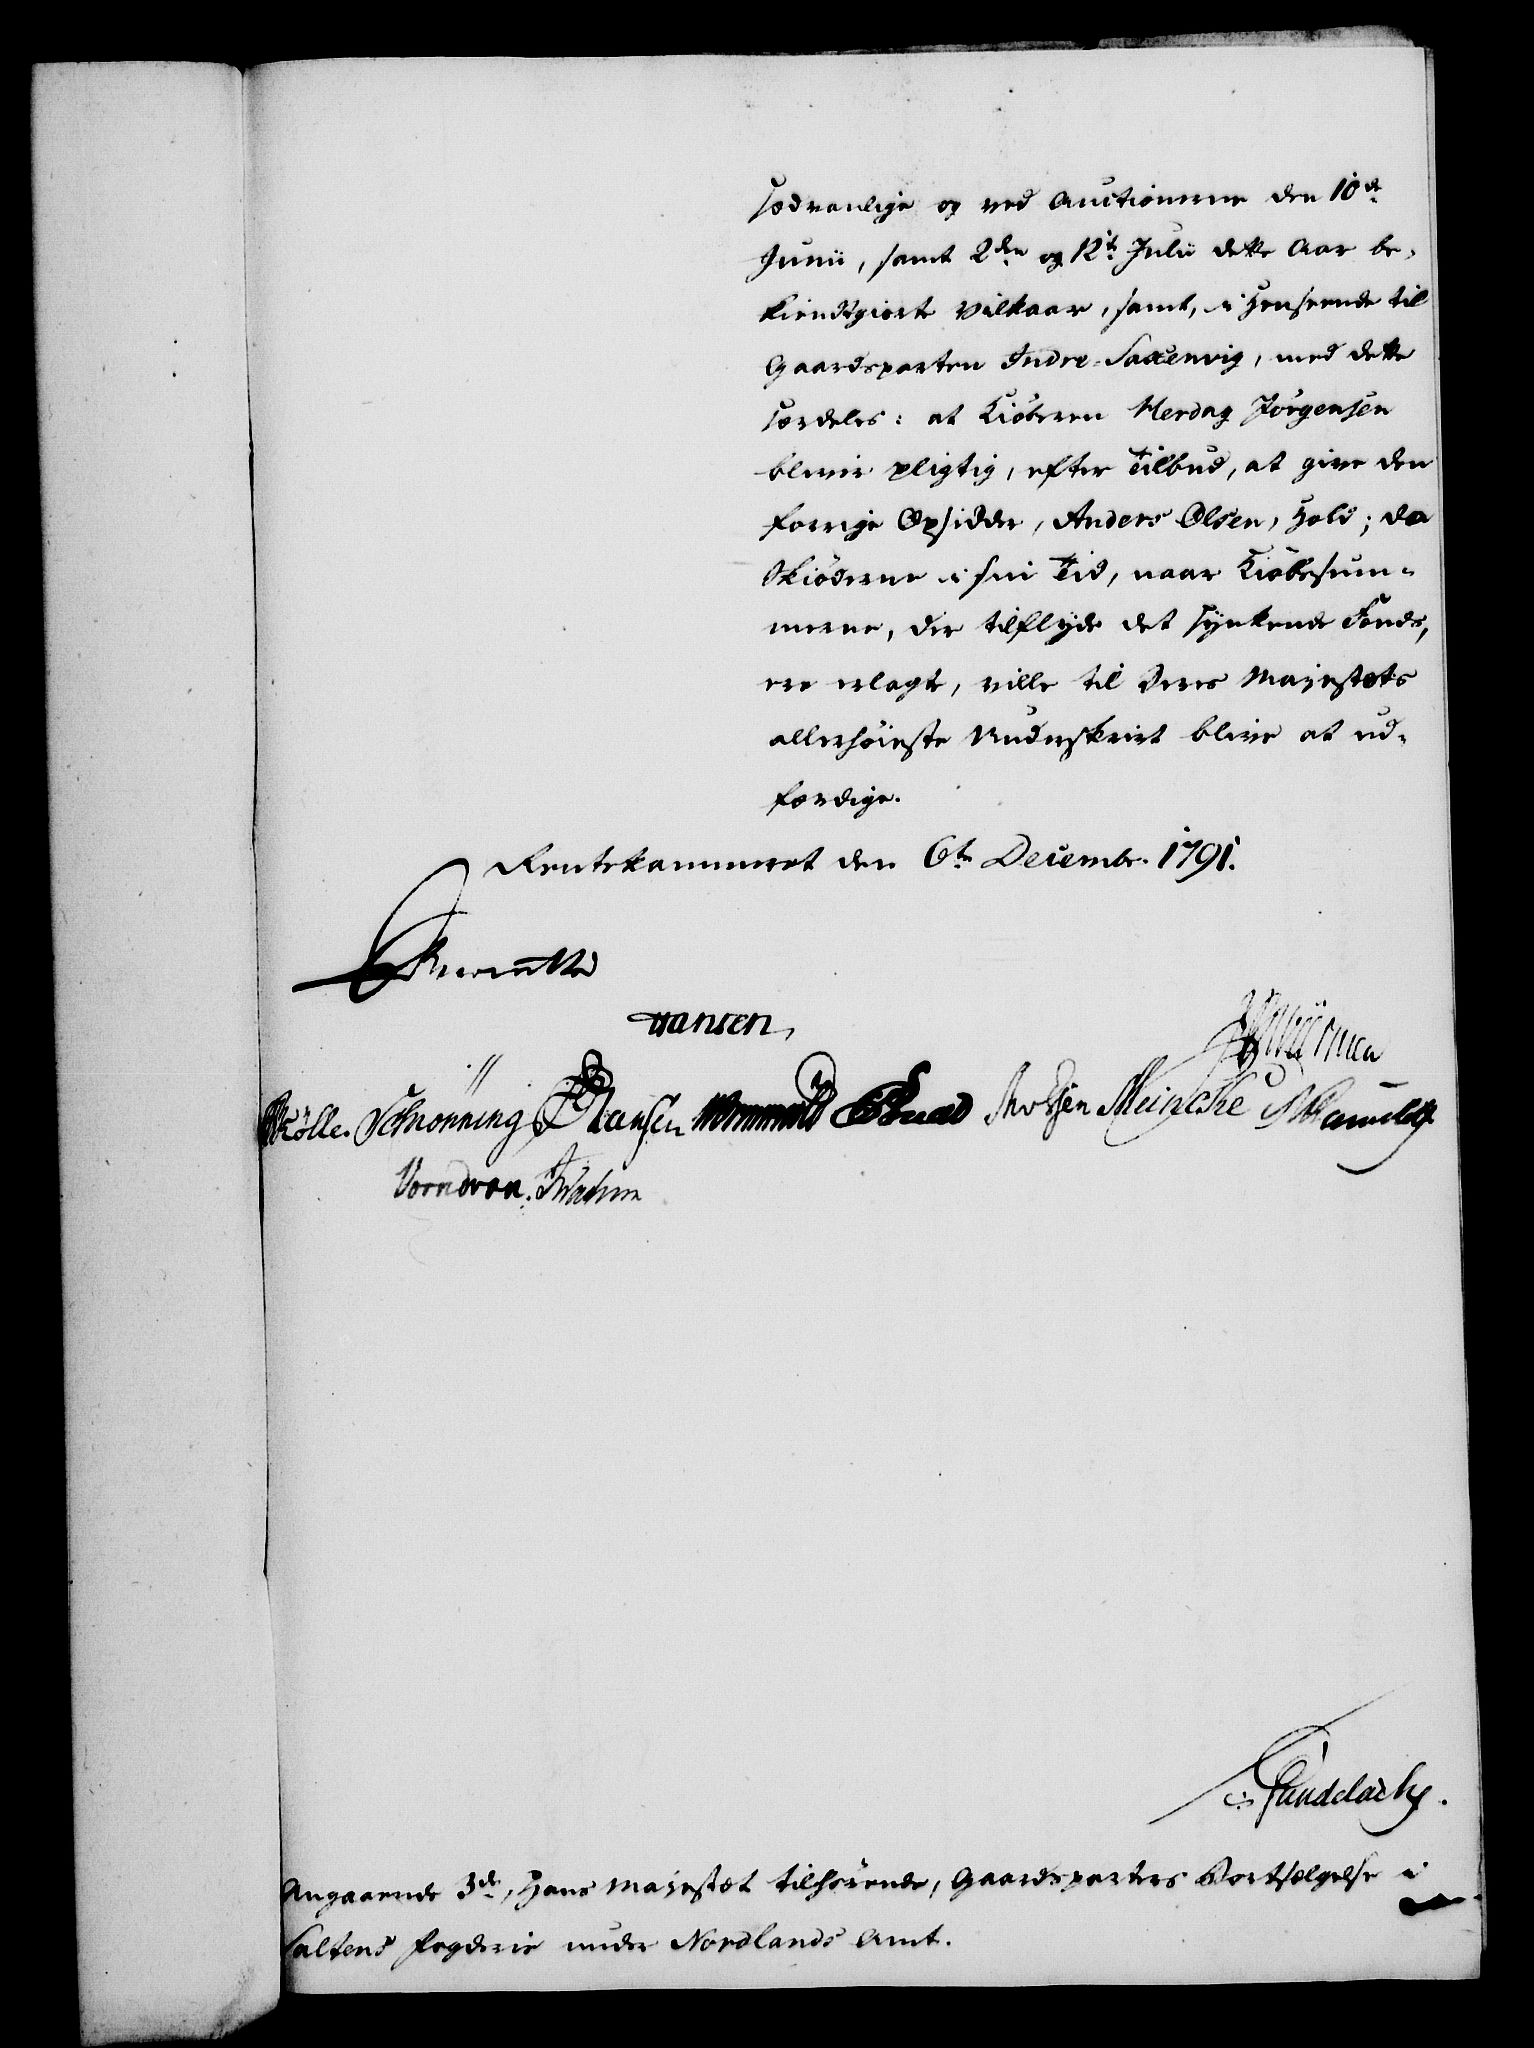 sædvanlige og ved Auctionerne den 10de
Junii, samt 2den og 12te Julii dette Aar be-
kiendtgiorte Vilkaar, samt, i Henseende til
Gaardsparten Indre-Saxenvig, med dette
særdeles: at Kiøberen Merdag Jørgensen
bliver pligtig, efter Tilbud, at give den
forrige Opsidder, Anders Olsen, Hold; da
Skiøderne i sin Tid, naar Kiøbesum-
merne, der tilflyde det synkende Fonds,
ere erlagte, ville til Deres Majestæts
allerhøieste Underskrivt blive at ud-
færdige.
Rentekammeret den 6te Decembr. 1791.
Hansen
Schrønning Hansen Meincke
Vorndran
Angaaende 3de, Hans Majestæt tilhørende, Gaardsparters Bortsælgelse i
Saltens Fogderie under Nordlands Amt.